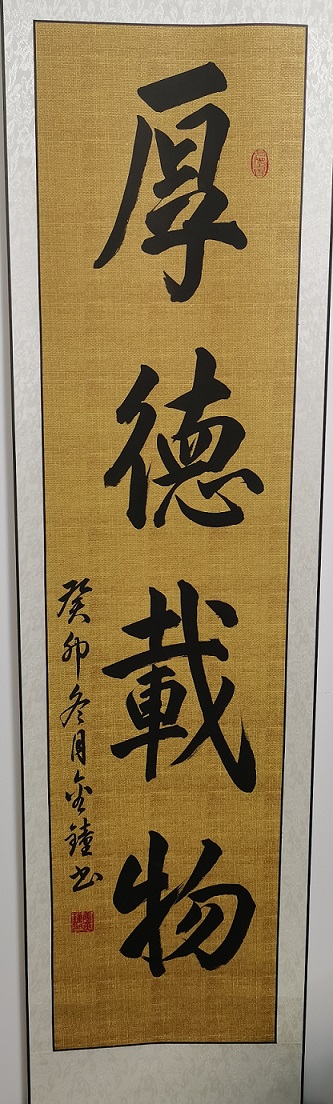 厚德載物
癸卯冬月金鐘书